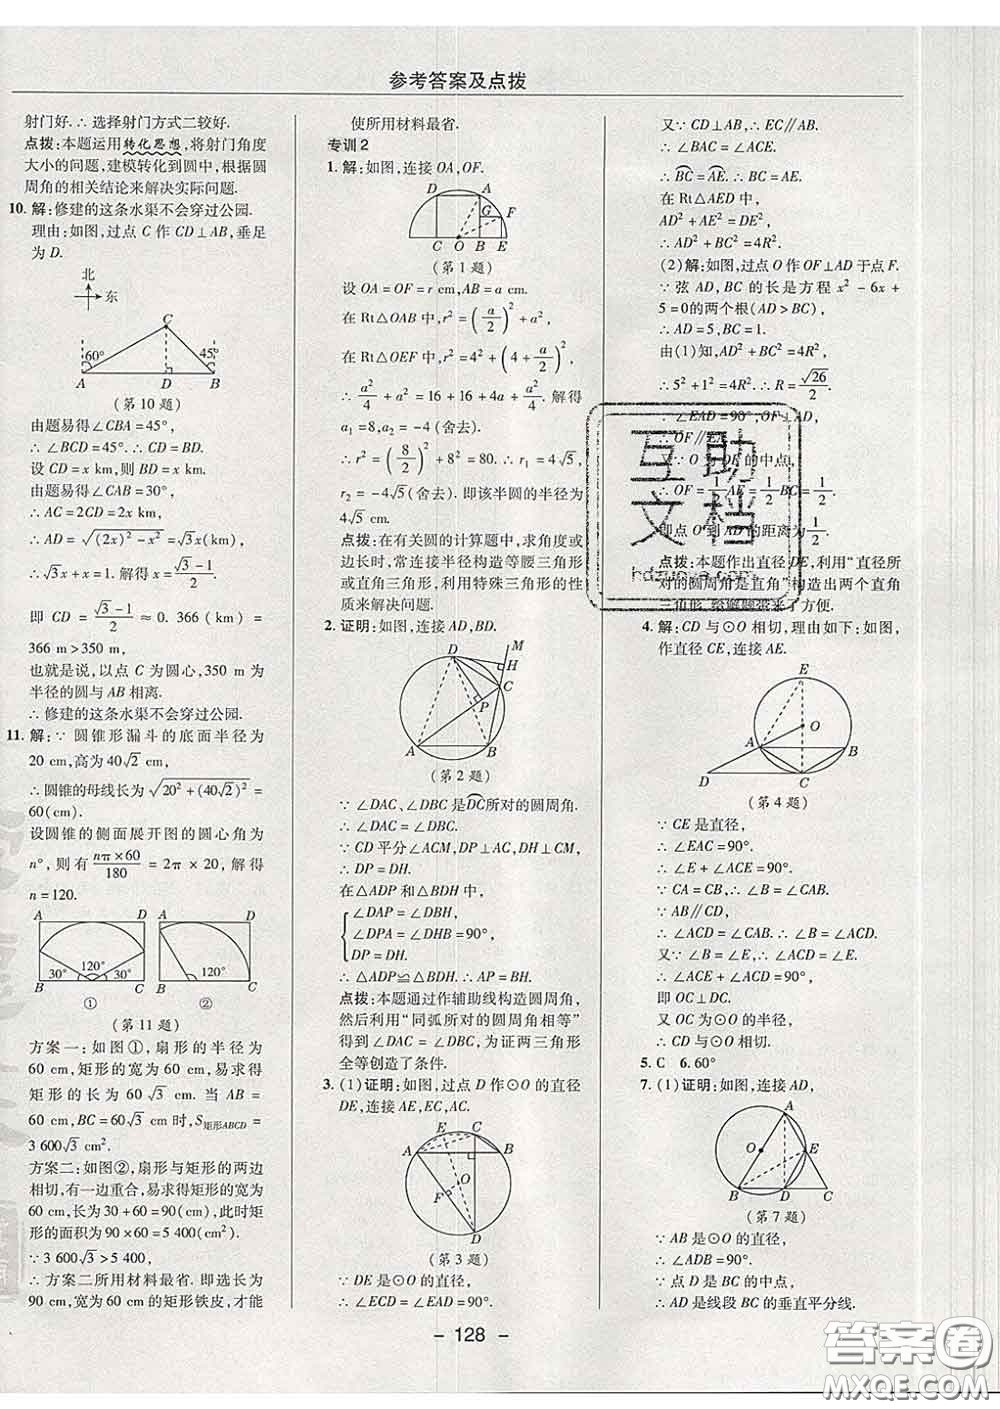 参考答案及点拨
射门好.∴选择射门方式二较好.
点拨:本题运用转化思想,将射门角度
大小的问题,建模转化到圆中,根据圆
周角的相关结论来解决实际问题.
10. 解:修建的这条水渠不会穿过公园.
理由:如图,过点 C 作 CD⊥AB,垂足
为 D.
北
东
C
60°
45°
A
D
B
(第 10 题)
由题易得∠CBA=45°,
∴∠BCD=45°.∴CD=BD.
设 CD=x km,则 BD=x km.
由题易得∠CAB=30°,
∴AC=2CD=2x km,
∴AD=√((2x)²-x²)=√3x km.
∴√3x+x=1. 解得 x=(√3-1)/2,
即 CD=(√3-1)/2≈0.366(km)=
366 m>350 m,
也就是说,以点 C 为圆心,350 m 为
半径的圆与 AB 相离.
∴修建的这条水渠不会穿过公园.
11. 解:∵圆锥形漏斗的底面半径为
20 cm,高为 40√2 cm,
∴圆锥的母线长为√(20²+(40√2)²)=
60(cm).
设圆锥的侧面展开图的圆心角为
n°,则有 nπ×60/180=2π×20,解得
n=120.
A D A D
120°
30° 30°
120°
B C B C
① ②
(第 11 题)
方案一:如图①,扇形的半径为
60 cm,矩形的宽为 60 cm,易求得
矩形的长为 60√3 cm. 当 AB=
60 cm,BC=60√3 cm 时,S矩形ABCD=
3 600√3 cm².
方案二:如图②,扇形与矩形的两边
相切,有一边重合,易求得矩形的宽为
60 cm,长为 30+60=90(cm),此时矩
形的面积为 90×60=5 400(cm²).
∵3 600√3>5 400,
∴方案二所用材料最省. 即选长为
90 cm,宽为 60 cm 的矩形铁皮,才能
使所用材料最省.
专训 2
1. 解:如图,连接 OA,OF.
D A
G F
C O B E
(第 1 题)
设 OA=OF=r cm,AB=a cm.
在 Rt△OAB 中,r²=(a/2)²+a²,
在 Rt△OEF 中,r²=4²+(4+a/2)²,
∴a²/4+a²=16+16+4a+a²/4. 解得
a₁=8,a₂=-4(舍去).
∴r²=(8/2)²+8²=80.∴r₁=4√5,
r₂=-4√5(舍去). 即该半圆的半径为
4√5 cm.
点拨:在有关圆的计算题中,求角度或
边长时,常连接半径构造等腰三角形
或直角三角形,利用特殊三角形的性
质来解决问题.
2. 证明:如图,连接 AD,BD.
M
D
H
C
P
A
B
(第 2 题)
∵∠DAC、∠DBC 是DC所对的圆周角.
∴∠DAC=∠DBC.
∵CD 平分∠ACM,DP⊥AC,DH⊥CM,
∴DP=DH.
在△ADP 和△BDH 中,
∠DAP=∠DBH,
∠DPA=∠DHB=90°,
DP=DH.
∴△ADP≌△BDH.∴AP=BH.
点拨:本题通过作辅助线构造圆周角,
然后利用“同弧所对的圆周角相等”
得到∠DAC=∠DBC,为证两三角形
全等创造了条件.
3. (1)证明:如图,过点 D 作⊙O 的直径
DE,连接 AE,EC,AC.
E C
A B
O
F
D
(第 3 题)
∵DE 是⊙O 的直径,
∴∠ECD=∠EAD=90°.
又∵CD⊥AB,∴EC∥AB.
∴∠BAC=∠ACE.
∴BC=AE.∴BC=AE.
在 Rt△AED 中,
AD²+AE²=DE²,
∴AD²+BC²=4R².
(2)解:如图,过点 O 作 OF⊥AD 于点 F.
∵弦 AD,BC 的长是方程 x²-6x+
5=0的两个根(AD>BC),
∴AD=5,BC=1.
由(1)知,AD²+BC²=4R²,
∴5²+1²=4R².∴R=√26/2.
∵∠EAD=90°,OF⊥AD,
∴OF∥EA.
又∵O 为 DE 的中点,
∴OF=1/2AE=1/2BC=1/2.
即点 O 到 AD 的距离为1/2.
点拨:本题作出直径 DE,利用“直径所
对的圆周角是直角”构造出两个直角
三角形,给解题带来了方便.
4. 解:CD 与⊙O 相切,理由如下:如图,
作直径 CE,连接 AE.
E
O
A B
D C
(第 4 题)
∵CE 是直径,
∴∠EAC=90°.
∴∠E+∠ACE=90°.
∵CA=CB,∴∠B=∠CAB.
∵AB∥CD,
∴∠ACD=∠CAB.
又∵∠B=∠E,∴∠ACD=∠E.
∴∠ACE+∠ACD=90°,
即 OC⊥DC.
又 OC 为⊙O 的半径,
∴CD 与⊙O 相切.
5. C 6. 60°
7. (1)证明:如图,连接 AD,
A
O E
B D C
(第 7 题)
∵AB 是⊙O 的直径,
∴∠ADB=90°.
∵点 D 是 BC 的中点,
∴AD 是线段 BC 的垂直平分线.
- 128 -
互助
文档
答案卷
MXQE.COM